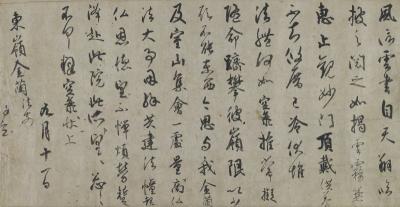 風信雲書自天翔臨
披之閲之如掲雲霧兼
惠止觀妙門頂戴供養
不知攸厝已冷伏惟
法體何如空海推常擬
隨命躋攀彼嶺限以少
願不能東西今思与我金蘭
及室山集會一處量商仏
法大事因縁共建法幢報
仏恩徳望不憚煩勞蹔
降赴此院此所々望々忩々
不具釋空海状上
九月十一日
東嶺金蘭法前
謹空